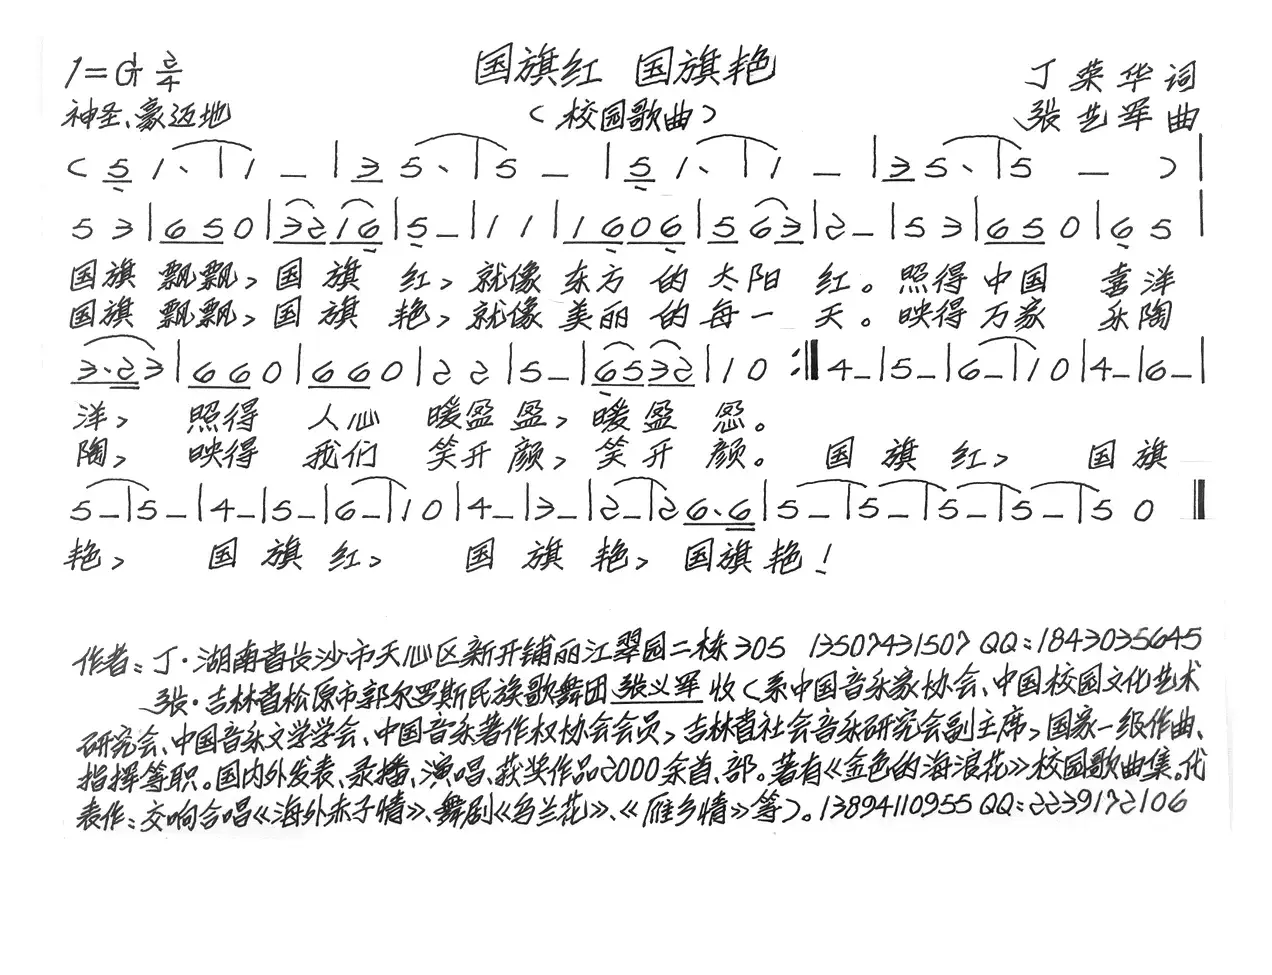 国旗红 国旗艳
1=G 2/4
丁荣华 词
神圣、豪迈地
（校园歌曲）
张艺军 曲
( 5 1、 | 1 – | 3 5、 | 5 – | 5 1、 | 1 – | 3 5、 | 5 – ) |
5 3 | 6 5 0 | 3 2 1 6 | 5 – | 1 1 | 1 6 0 6 | 5 6 3 | 2 – | 5 3 | 6 5 0 | 6 5 |
国旗 飘飘, 国 旗 红, 就像 东方 的 太阳 红。照得 中国 喜洋
国旗 飘飘, 国 旗 艳, 就像 美丽 的 每一 天。映得 万家 乐陶
3·2 3 | 6 6 0 | 6 6 0 | 2 2 | 5 – | 6 5 3 2 | 1 0 :‖ 4 – | 5 – | 6 – | 1 0 | 4 – | 6 – |
洋, 照得 人心 暖盈 盈, 暖盈 盈。
陶, 映得 我们 笑开 颜, 笑开 颜。 国 旗 红, 国 旗
5 – | 5 – | 4 – | 5 – | 6 – | 1 0 | 4 – | 3 – | 2 – | 2 6、6 | 5 – | 5 – | 5 – | 5 – | 5 0 ‖
艳, 国 旗 红, 国 旗 艳, 国旗 艳!
作者:丁·湖南省长沙市天心区新开铺丽江翠园二栋305 13507431507 QQ:1843035645
张·吉林省松原市郭尔罗斯民族歌舞团 张艺军 收(系中国音乐家协会、中国校园文化艺术
研究会、中国音乐文学学会、中国音乐著作权协会会员,吉林省社会音乐研究会副主席,国家一级作曲、
指挥等职。国内外发表、录播、演唱、获奖作品2000余首、部。著有《金色的海浪花》校园歌曲集。代
表作:交响合唱《海外赤子情》、舞剧《乌兰花》、《雁乡情》等)。13894110955 QQ:2239172106